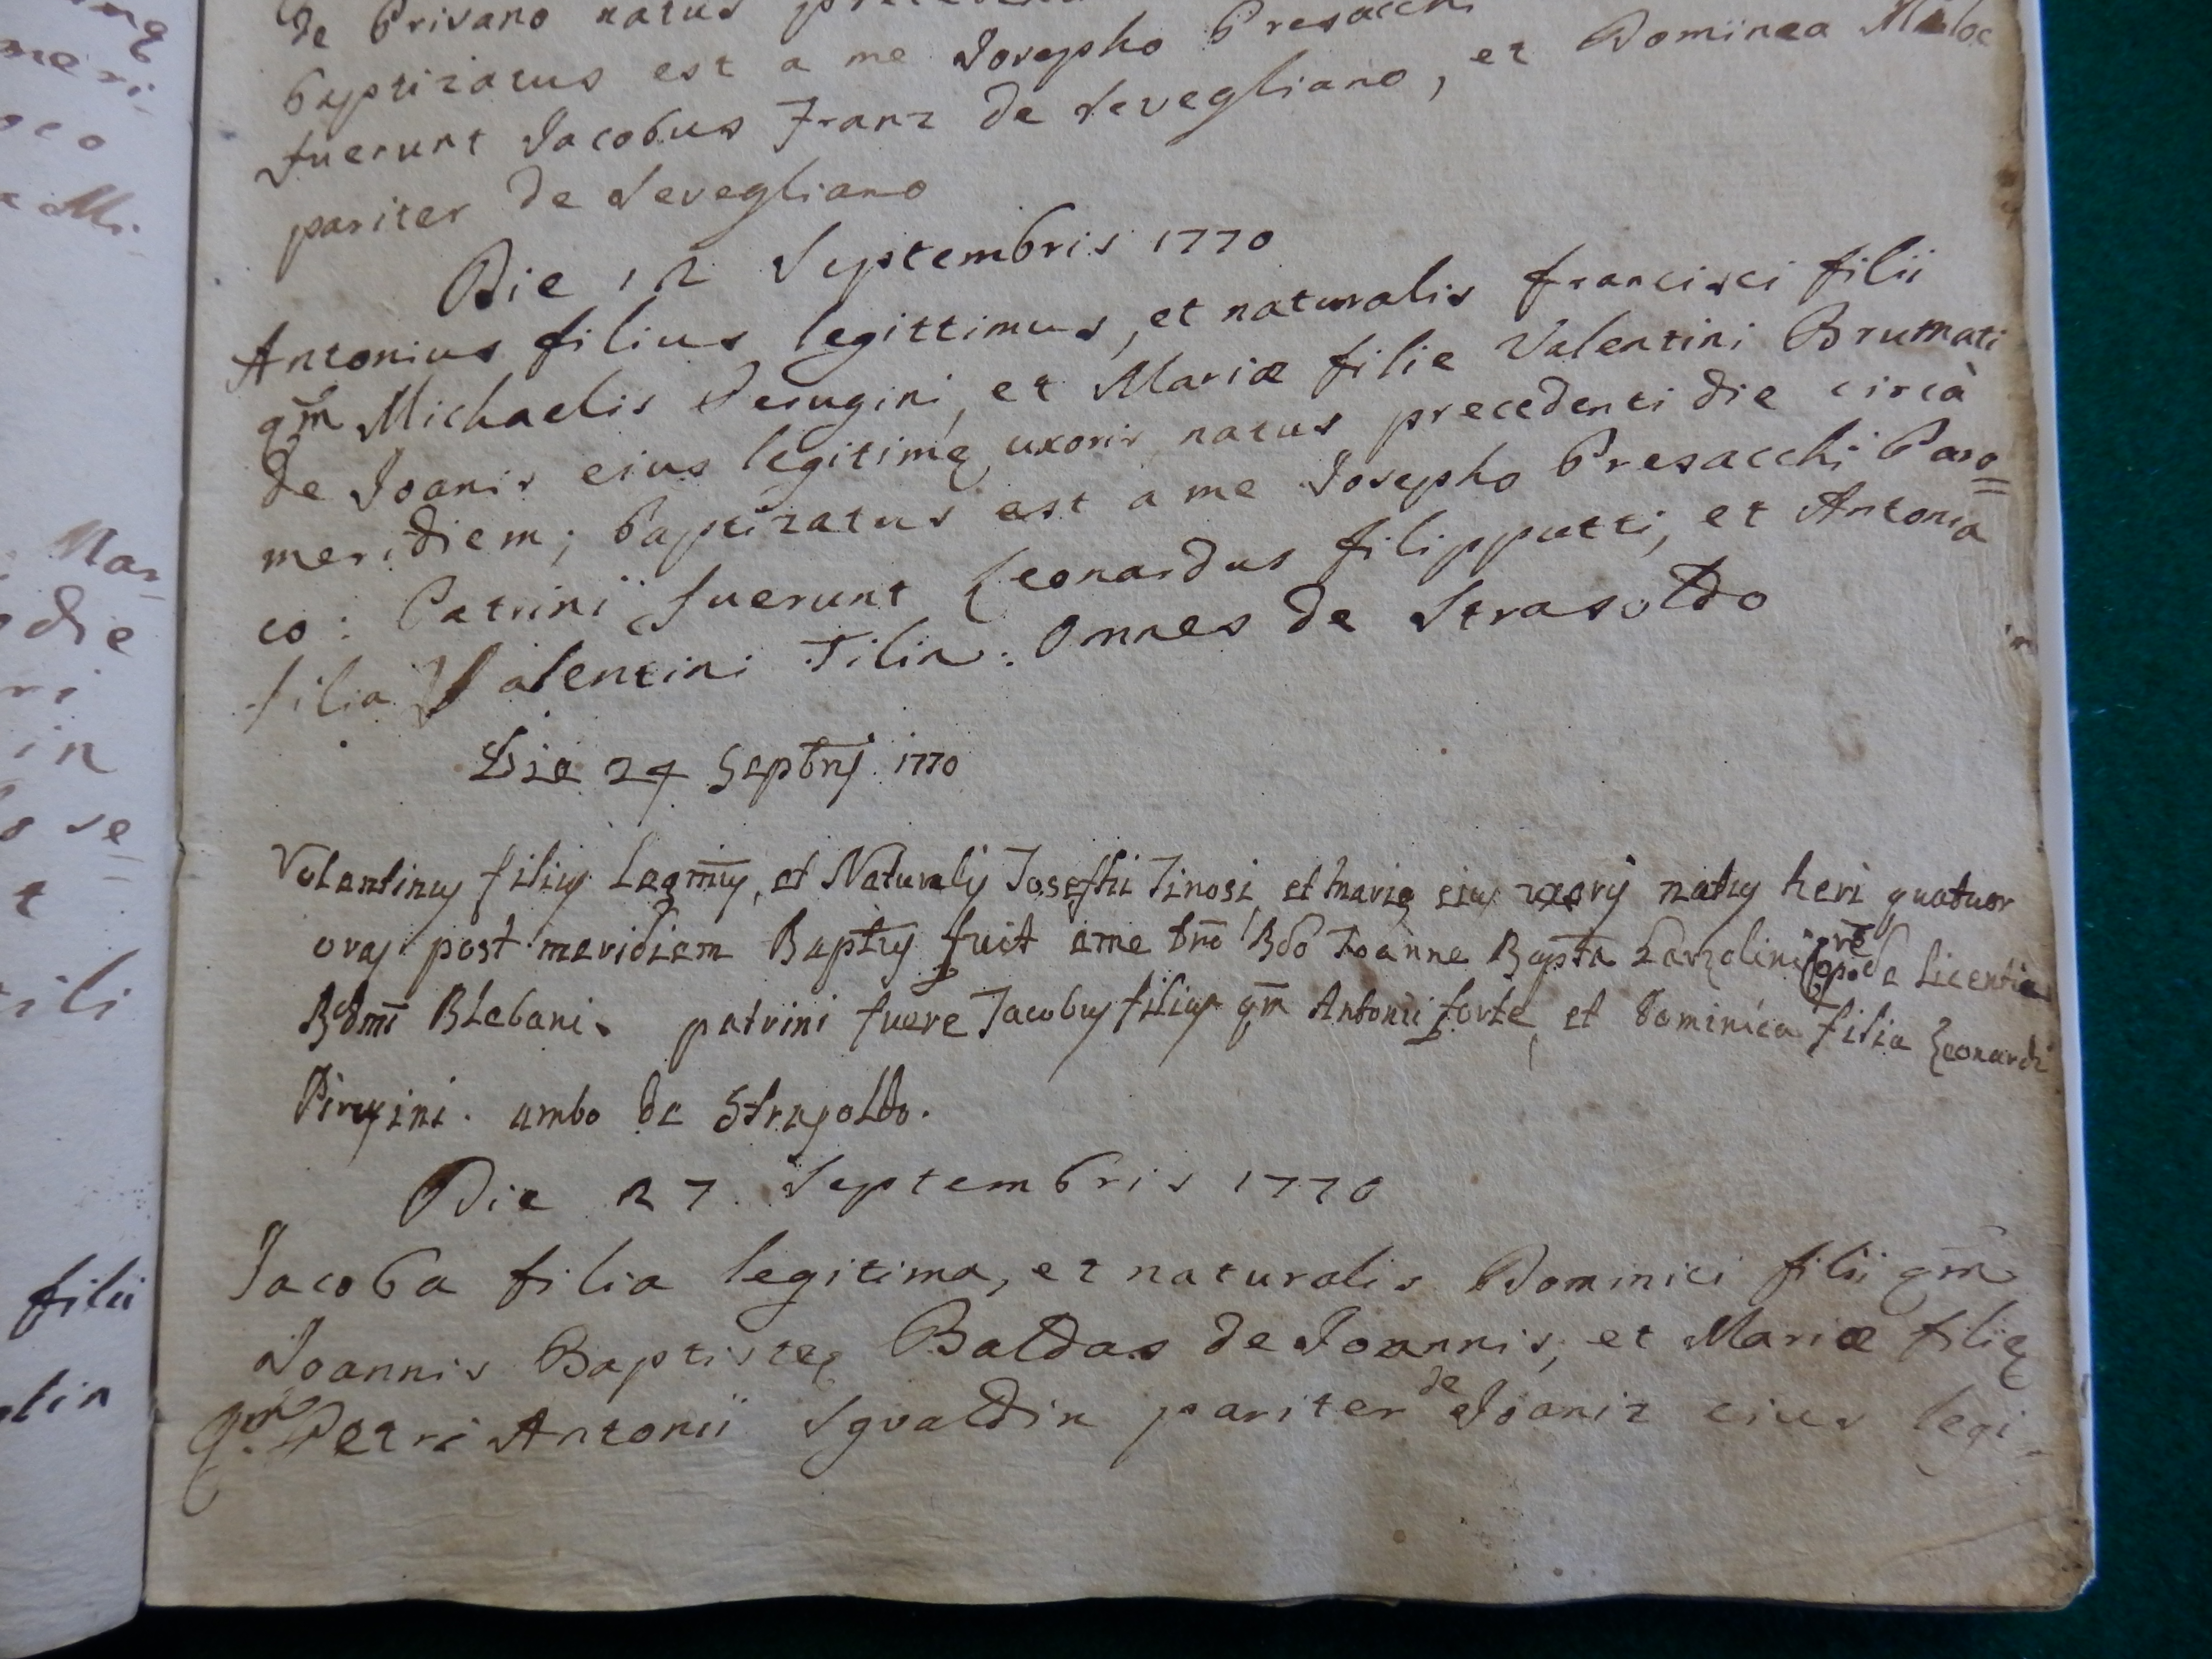 de Privano natus
baptizatus est a me Josepho Presacchi
fuerunt Jacobus Franz de Sevegliano, et Dominica
pariter de Sevegliano
Die 12 Septembris 1770
Antonius filius legittimus, et naturalis Francisci filii
qm̄ Michaelis Perugini, et Mariæ filie Valentini Brumati
de Joanis eius legitimę uxoris natus precedenti die circà
meridiem; baptizatus est a me Josepho Presacchi Paro=
co: Patrini fuerunt Leonardus Filipputti, et Antonia
filia Valentini Tilin: Omnes de Strasoldo
Die 24 Septbris 1770
Valentinus filius Legmus, et Naturalis Josephi Tinosi, et Marię eius uxoris natus heri quatuor
oras post meridiem Baptus fuit a me Joanne Bapta de Licentia
Rdmi Plebani. patrini fuere Jacobus filius qm̄ Antonii forte, et Dominica filia Leonardi
Pirusini. ambo de Strasoldo.
Die 27 Septembris 1770
Jacoba filia legitima, et naturalis Dominici filii qm̄
Joannis Baptistę Baldas de Joannis, et Mariæ filię
Qm̄ Petri Antonii Sgualdin pariter de Joaniz eius legi-
filii